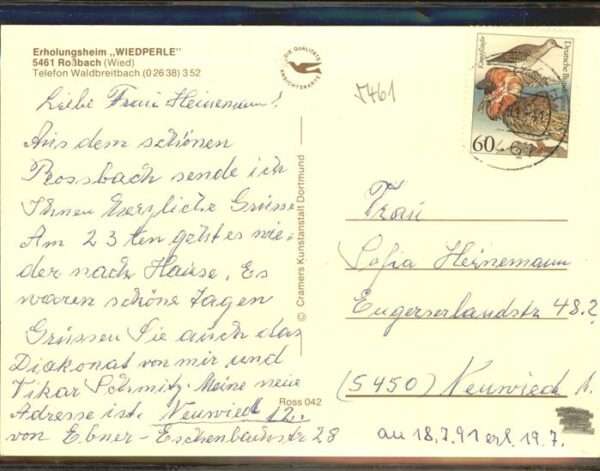 Erholungsheim „WIEDPERLE"
5461 Roßbach (Wied)
Telefon Waldbreitbach (0 26 38) 3 52
Liebe Frau Heinemann!
Aus dem schönen
Rossbach sende ich
Ihnen Herzliche Grüsse
Am 23ten geht es wie-
der nach Hause. Es
waren schöne Tagen
Grüssen Sie auch das
Diakonat von mir und
Vikar Schmitz. Meine neue
Adresse ist. Neuwied 12.
von Ebner-Eschenbachstr 28
DIE QUALITÄTS
ANSICHTSKARTE
© Cramers Kunstanstalt Dortmund
Ross 042
5461
Deutsche
60
Frau
Sofia Heinemann
Engerserlandstr 48.2
(5450) Neuwied
an 18.7.91 erl. 19.7.